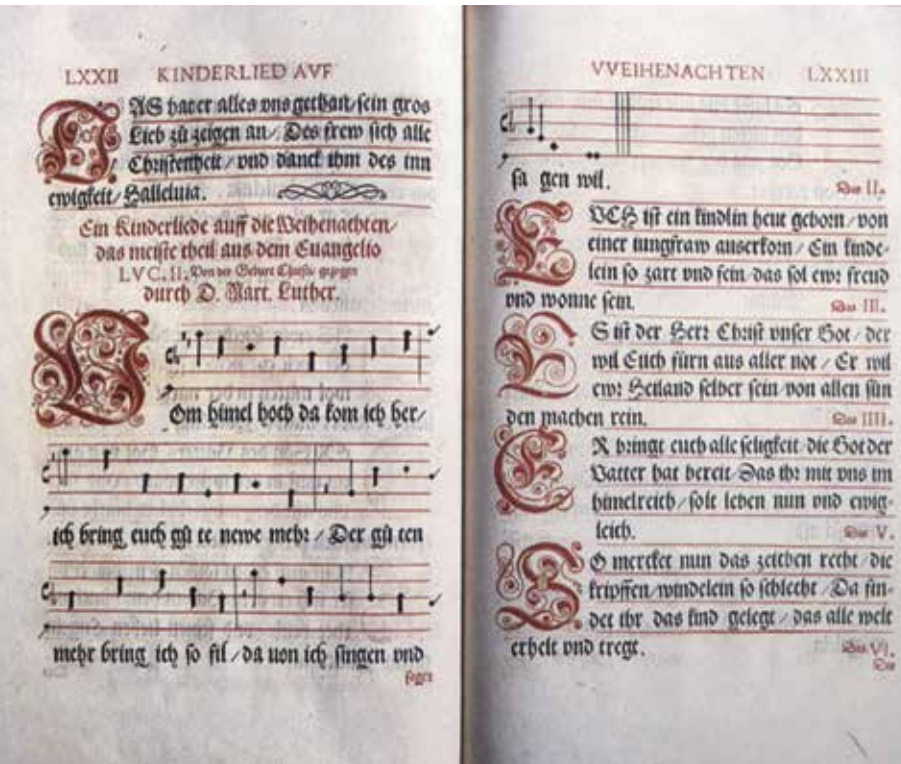 LXXII KINDERLIED AVF
DAS hat er alles vns gethan/sein gros
Lieb zů zeigen an/Des frew sich alle
Christenheit/vnd danck ihm des inn
ewigkeit/Halleluia.
Ein Kinderliede auff die Weihenachten/
das meiste theil aus dem Euangelio
LVC.II. Von der Geburt Christi/ gezogen
durch D. Mart. Luther.
VOm himel hoch da kom ich her/
ich bring euch gů te newe mehr/Der gů ten
mehr bring ich so fil/da uon ich singen vnd
sagen
VVEIHENACHTEN LXXIII
sa gen wil.
Das II.
EVCH ist ein kindlin heut geborn/von
einer iungfraw auserkorn/Ein kinde-
lein so zart vnd fein das sol ewr freud
vnd wonne sein. Das III.
ES ist der Herr Christ vnser Got/der
wil Euch fürn aus aller not/Er wil
ewr Heiland selber sein/von allen sün
den machen rein. Das IIII.
ER bringt euch alle seligkeit die Got der
Vatter hat bereit Das ihr mit vns im
himelreich/solt leben nun vnd ewig-
leich. Das V.
SO mercket nun das zeichen recht/die
kripffen/windelein so schlecht/Da fin-
det ihr das kind gelegt/das alle welt
erhelt vnd tregt. Das VI.
Die